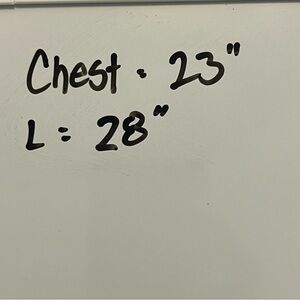 Chest · 23"
L = 28"